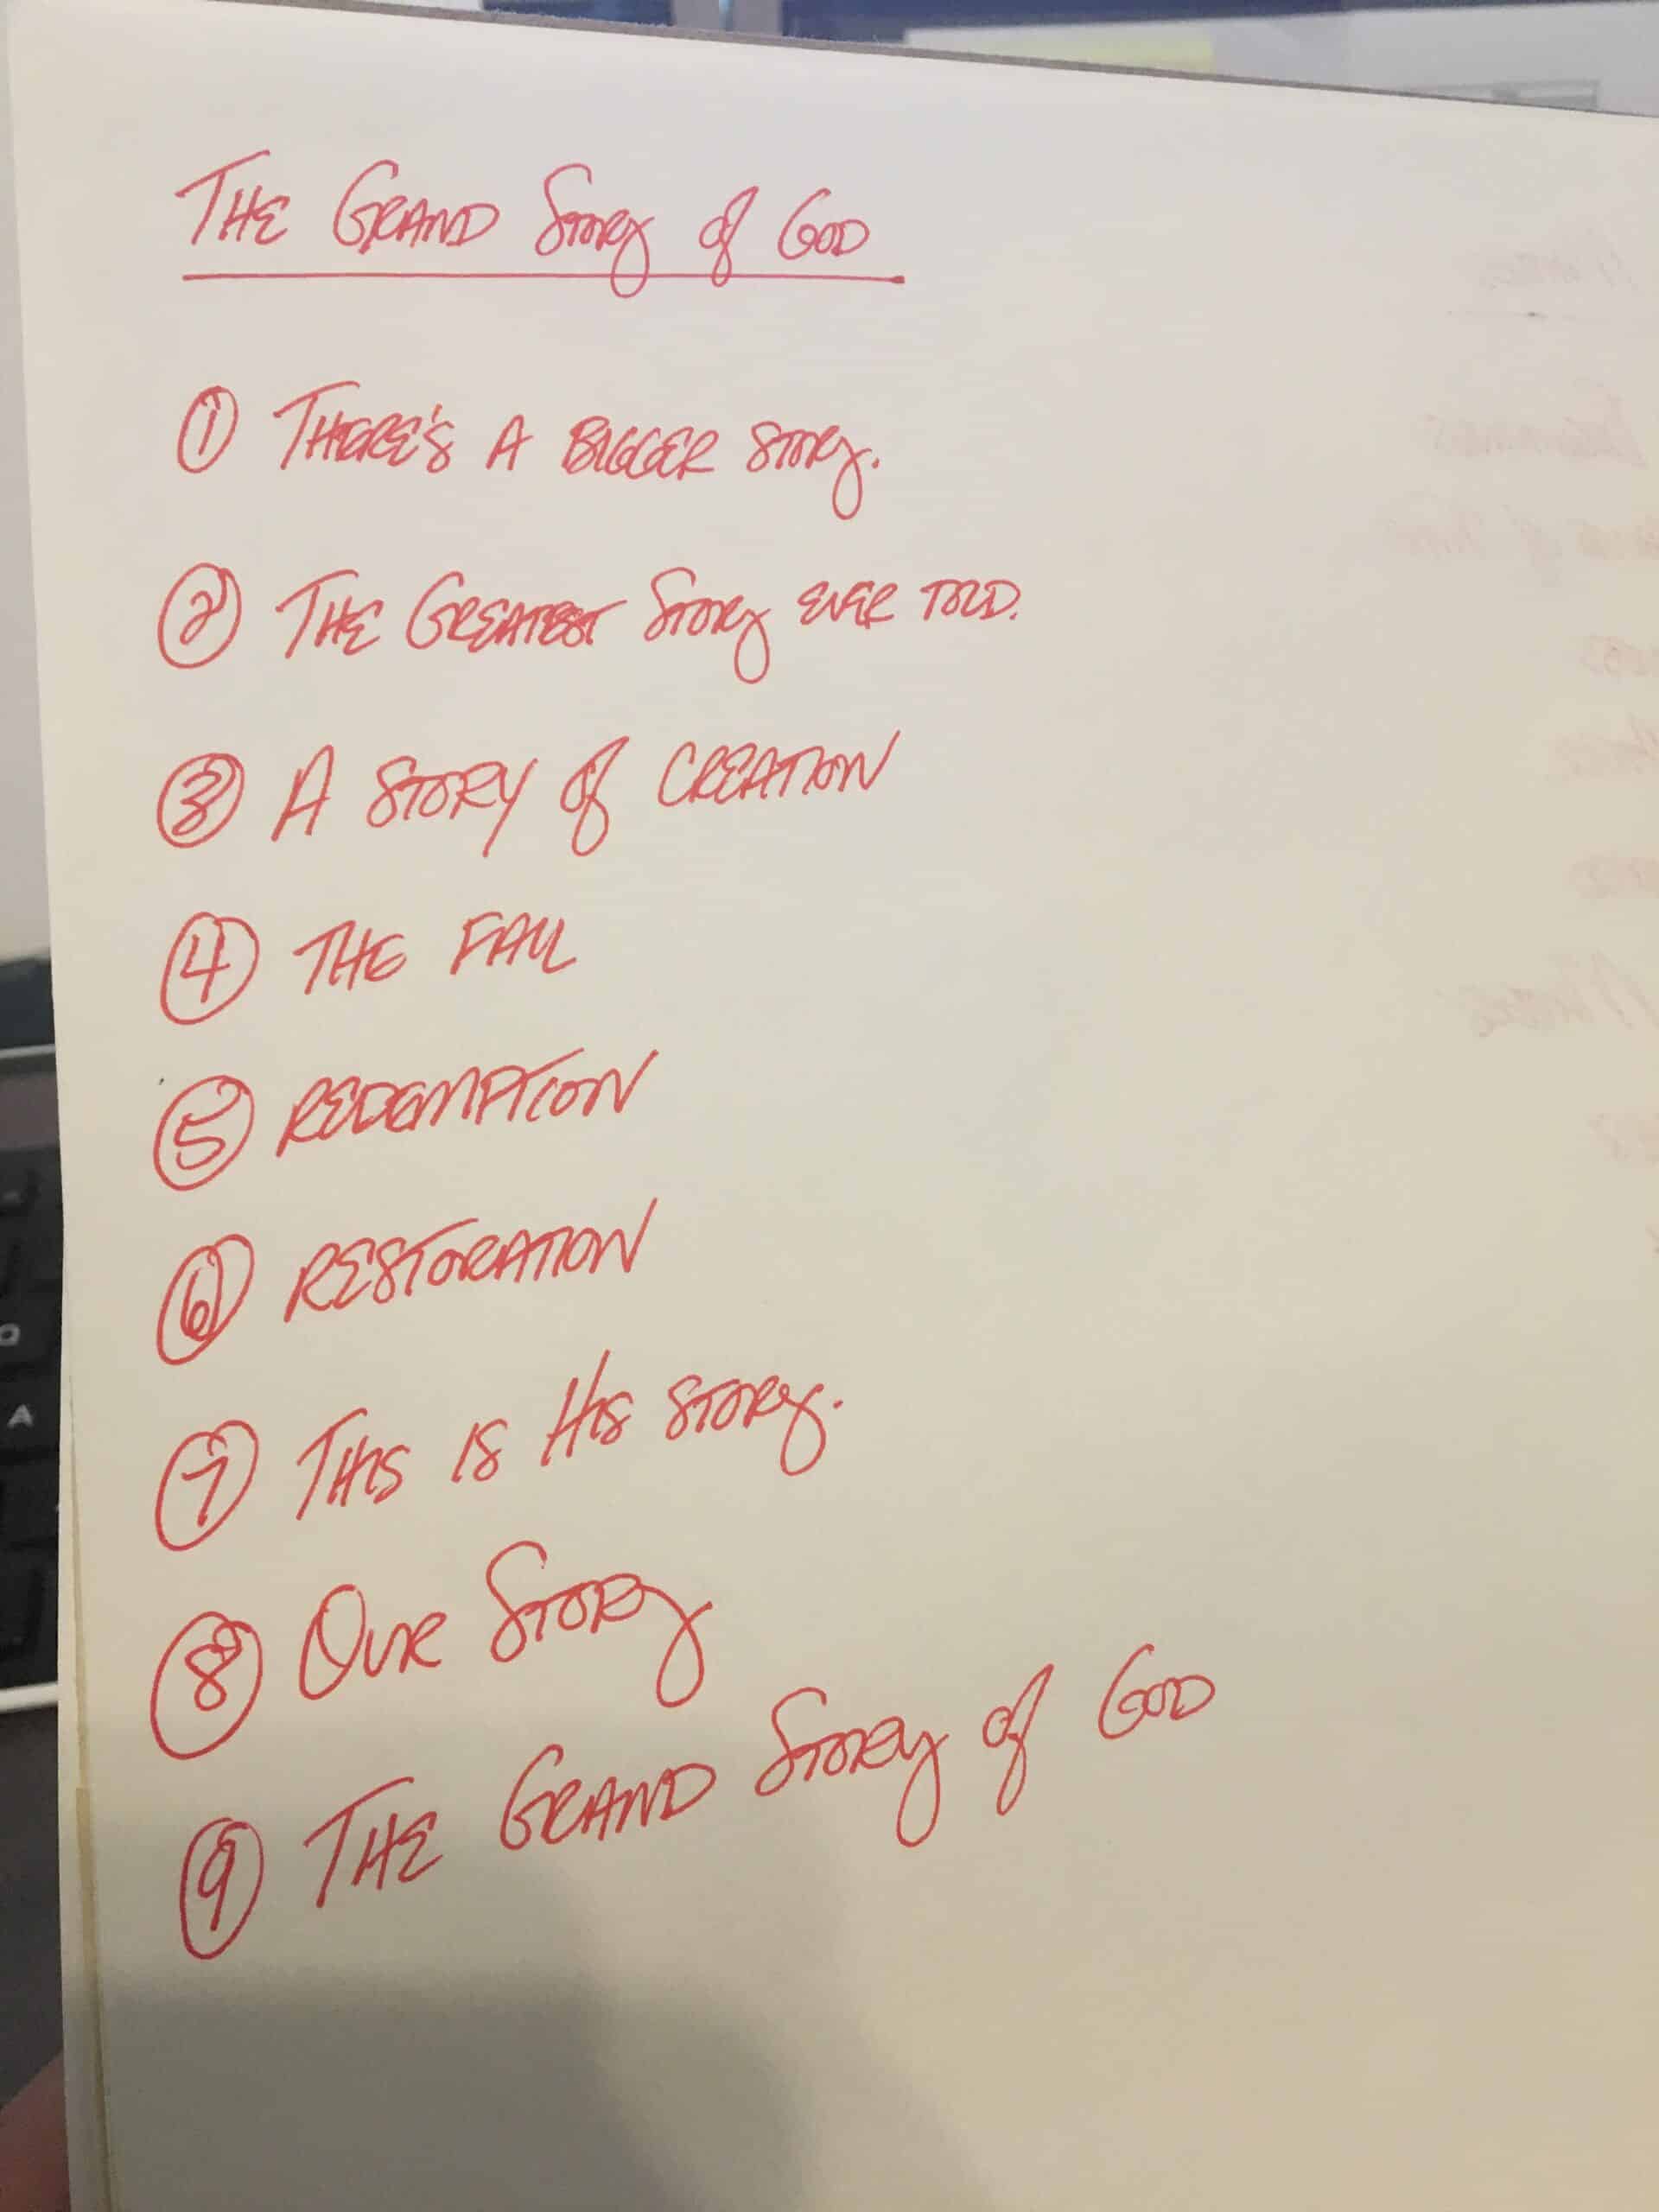 THE GRAND STORY of GOD
① THERE'S A BIGGER STORY.
② THE GREATEST STORY EVER TOLD.
③ A STORY of CREATION
④ THE FALL
⑤ REDEMPTION
⑥ RESTORATION
⑦ THIS IS HIS STORY.
⑧ OUR STORY
⑨ THE GRAND STORY of GOD
A